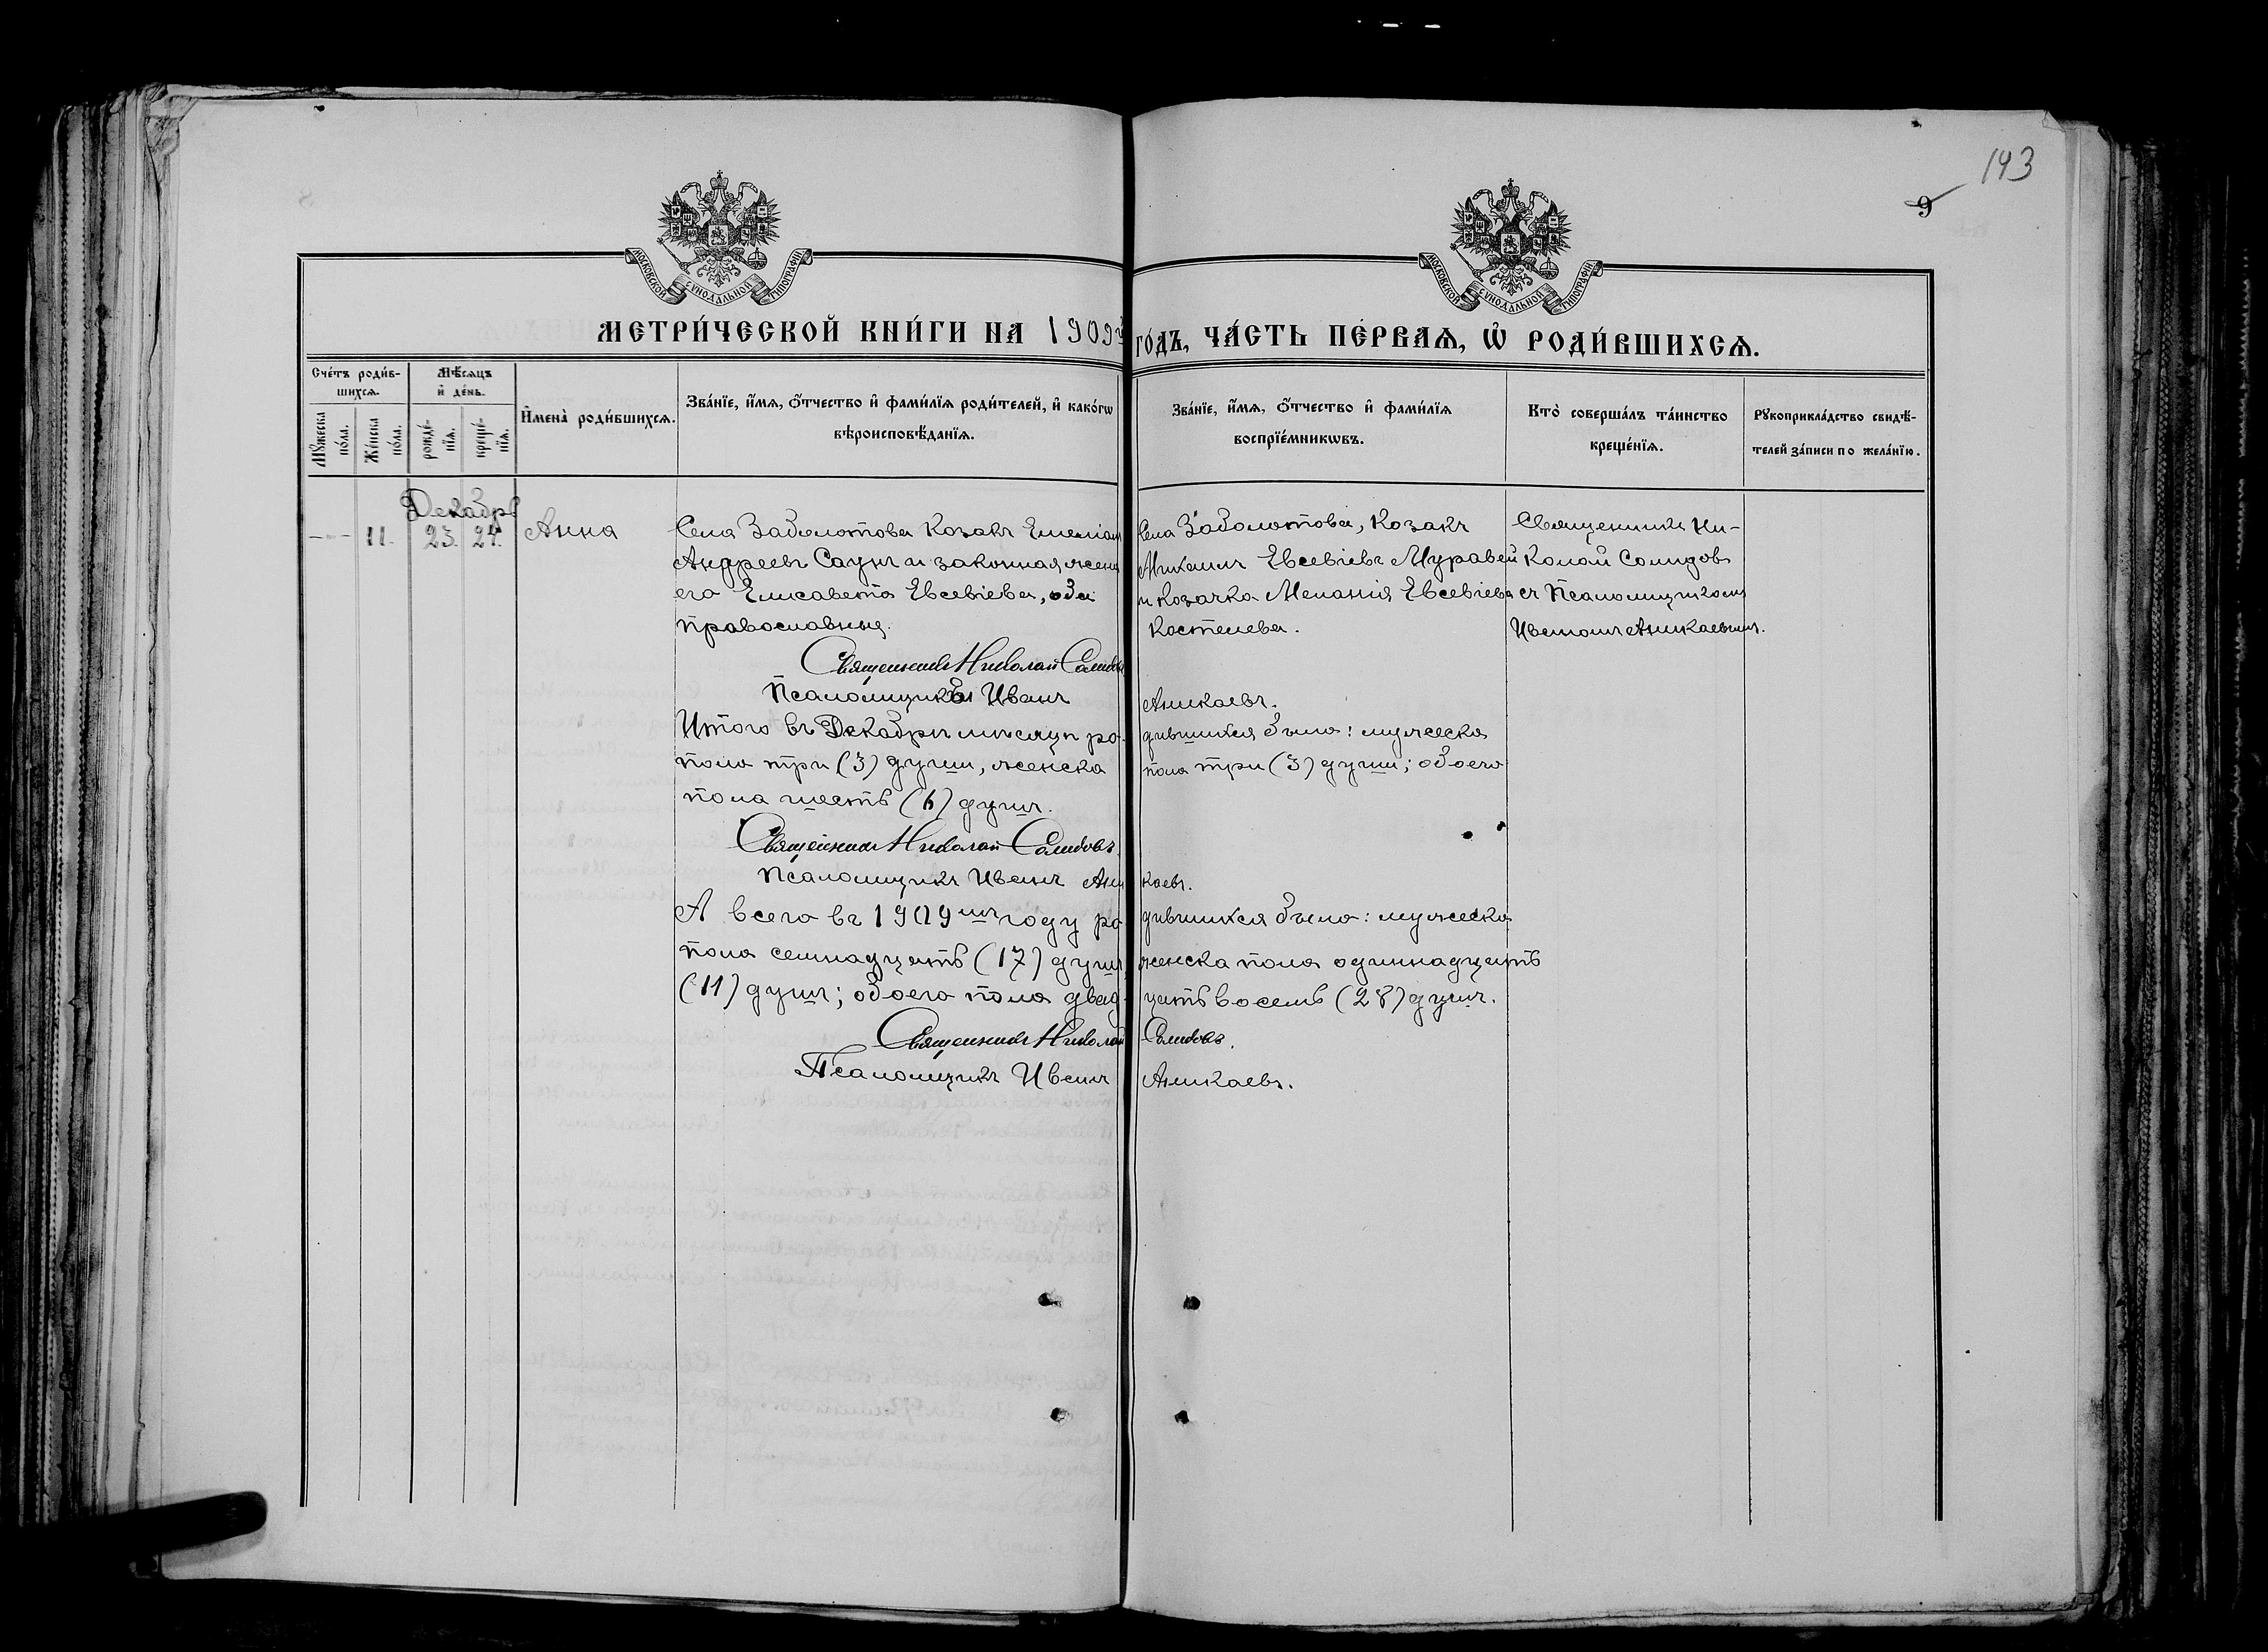 193
9
МОСКОВСКОЙ СѴНОДАЛЬНОЙ ТИПОГРАФІИ
МОСКОВСКОЙ СѴНОДАЛЬНОЙ ТИПОГРАФІИ
МЕТРИ́ЧЕСКОЙ КНИ́ГИ НА 1909й ГО́ДЪ, ЧА́СТЬ ПЕ́РВАѦ, Ѡ҆ РОДИ́ВШИХСѦ.
Сче́тъ роди́в-
шихсѧ.
Мѣ́сѧцъ
и҆ де́нь.
Мꙋ́жеска
по́ла.
Же́нска
по́ла.
рожде́-
нїѧ.
креще́-
нїѧ.
И҆мена̀ роди́вшихсѧ.
Зва́нїе, и҆́мѧ, ѻ҆́тчество и҆ фами́лїѧ роди́телей, и҆ како́гѡ
вѣроисповѣ́данїѧ.
Зва́нїе, и҆́мѧ, ѻ҆́тчество и҆ фами́лїѧ
воспрїе́мникѡвъ.
Кто̀ соверша́лъ та́инство
креще́нїѧ.
Рꙋкоприкла́дство свидѣ́-
телей за́писи по жела́нїю.
Декабрь
11. 23. 24. Анна
Села Заболотова Козакъ Емеліан
Андреевъ Саунъ и законная жена
его Елисавета Евсевіева, оба
православныя.
Села Заболотова, Козакъ
Михаилъ Евсевіевъ Муравей
и Козачка Меланія Евсевіева
Костелева.
Священникъ Ни-
колай Солидовъ
съ Псаломщикомъ
Иваномъ Аникаевымъ.
Священникъ Николай Солидовъ
Псаломщикъ Иванъ Аникаевъ.
Итого въ Декабрѣ мѣсяцѣ ро- дившихся было: мужеска
пола три (3) души, женска пола три (3) души; обоего
пола шесть (6) душъ.
Священникъ Николай Солидовъ
Псаломщикъ Иванъ Аникаевъ.
А всего въ 1909мъ году ро- дившихся было: мужеска
пола семнадцать (17) душъ, женска пола одиннадцать
(11) душъ; обоего пола двад- цать восемь (28) душъ.
Священникъ Николай Солидовъ.
Псаломщикъ Иванъ Аникаевъ.